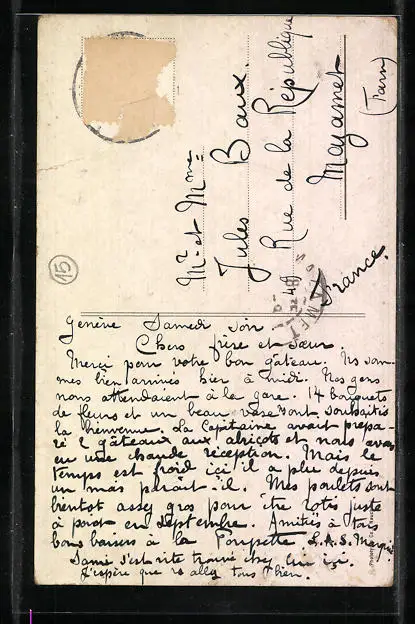 Mr et Mme
Jules Baux
Rue de la République
Mazamet
(Tarn)
France.
15
Genève Samedi soir
Chers frère et sœur
Merci pour votre bon gâteau. Ns som-
mes bien arrivés hier à midi. Nos gens
nous attendaient à la gare. 14 bouquets
de fleurs et un beau vase vont souhaités
la bienvenue. La Capitaine avait prépa-
ré 2 gâteaux aux abricots et nous avons
eu une chaude réception. Mais le
temps est froid ici il a plu depuis
un mois paraît-il. Mes poulets sont
bientôt assez gros pour être rôtis juste
à point en septembre. Amitiés à tous
bons baisers à la Toupette L.A.S.
s'est vite trouvé chez lui ici.
J'espère que vs allez tous bien.